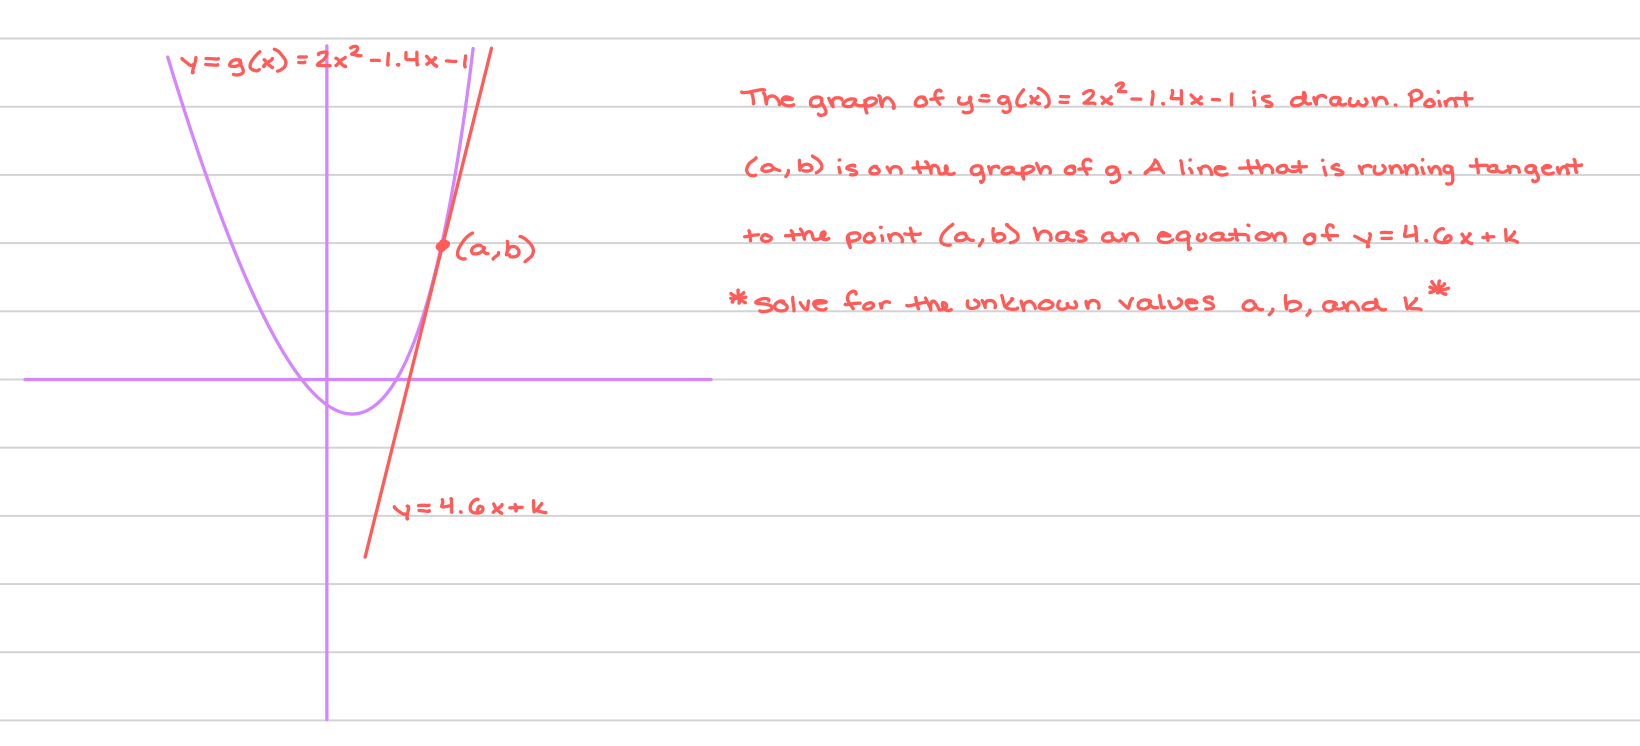 y = g(x) = 2x² - 1.4x - 1
The graph of y = g(x) = 2x² - 1.4x - 1 is drawn. Point
(a, b) is on the graph of g. A line that is running tangent
to the point (a, b) has an equation of y = 4.6x + k
*solve for the unknown values a, b, and k*
(a, b)
y = 4.6x + k